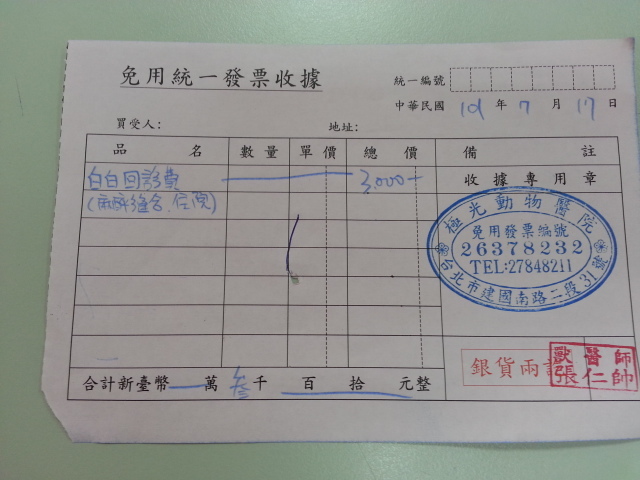 免用統一發票收據
統一編號
中華民國 101 年 7 月 17 日
買受人: 地址:
品名 數量 單價 總價 備註
白白回診費 3,000- 收據專用章
(麻醉縫合、住院)
極光動物醫院
免用發票編號
26378232
TEL:27848211
台北市建國南路二段31號
銀貨兩訖
獸醫師
張仁帥
合計新臺幣 萬 叁千 百 拾 元整